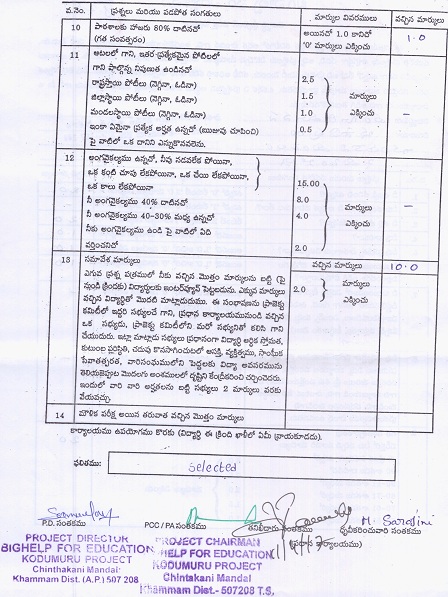 వ.నెం. ప్రశ్నలు మరియు పడపోత సంగతులు మార్కుల వివరములు వచ్చిన మార్కులు
10 పాఠశాలకు హాజరు 80% దాటినచో అయినచో 1.0 కానిచో 1.0
(గత సంవత్సరం) '0' మార్కులు ఎక్కించు
11 ఆటలలో గాని, ఇతర ప్రత్యేకమైన పోటీలలో
గాని పాల్గొన్న నిపుణత ఉండినచో 2.5
రాష్ట్రస్థాయి పోటీలు (నెగ్గినా, ఓడినా)
జిల్లాస్థాయి పోటీలు (నెగ్గినా, ఓడినా) 1.5 మార్కులు
మండలస్థాయి పోటీలు (నెగ్గినా, ఓడినా) 1.0 ఎక్కించు –
ఇంకా ఏమైనా ప్రత్యేక అర్హత ఉన్నచో (ఋజువు చూపించి) 0.5
పై వాటిలో ఒక దానిని ఎన్నుకొనవలెను.
12 అంగవైకల్యము ఉన్నచో, నీవు నడవలేక పోయినా,
ఒక కంటి చూపు లేకపోయినా, ఒక చేయి లేకపోయినా,
ఒక కాలు లేకపోయినా 15.00
నీ అంగవైకల్యము 40% దాటినచో 8.0 మార్కులు –
నీ అంగవైకల్యము 40-30% మధ్య ఉన్నచో 4.0 ఎక్కించు
నీకు అంగవైకల్యము ఉండి పై వాటిలో ఏది
వర్తించనిచో 2.0
13 సమావేశ మార్కులు వచ్చిన మార్కులు 10.0
ఎగువ ప్రశ్న పత్రములో నీకు వచ్చిన మొత్తం మార్కులను బట్టి (పై 2.0 మార్కులు
నుండి క్రిందకు) విద్యార్థులకు ఇంటర్వ్యూన్ పెట్టబడును. ఎక్కువ మార్కులు ఎక్కించు
వచ్చిన విద్యార్థితో మొదటి మాట్లాడుదుము. ఈ సంభాషణను ప్రాజెక్టు
కమిటీలో ఇద్దరి సభ్యులచే గాని, ప్రధాన కార్యాలయమునుండి వచ్చిన
ఒక సభ్యుడు, ప్రాజెక్టు కమిటీలోని మరో సభ్యునితో కలిసి గాని
చేయుదురు. ఇట్లా మాట్లాడు సభ్యులు ప్రధానంగా విద్యార్థి ఆర్థిక స్తోమత,
కుటుంబ పరిస్థితి, చదువు కొనసాగించుటలో ఆసక్తి, వ్యక్తిత్వము, సాంఘిక
సేవాతత్పరత, వారిసంఘములోని పెద్దలకు విద్యా అవసరమును
తెలియజెప్పుట మొదలగు అంశములలో దృష్టిని కేంద్రీకరించి చర్చించెదరు.
ఇందులో వారి వారి అర్హతలను బట్టి సభ్యులు 2 మార్కులు వరకు
వేయవచ్చు.
14 మౌలిక పరీక్ష అయిన తరువాత వచ్చిన మొత్తం మార్కులు
కార్యాలయం ఉపయోగము కొరకు (విద్యార్థి ఈ క్రింది ఖాళీలో ఏమీ వ్రాయకూడదు).
ఫలితము: selected
M. Sarojini
P.D. సంతకము PCC / PA సంతకము తనిఖీదారు సంతకము ధృవీకరించువారి సంతకము
(ప్రధాన కార్యాలయం)
PROJECT DIRECTOR
BIGHELP FOR EDUCATION
KODUMURU PROJECT
Chinthakani Mandal
Khammam Dist. (A.P.) 507 208
PROJECT CHAIRMAN
HELP FOR EDUCATION
KODUMURU PROJECT
Chintakani Mandal
Khammam Dist.- 507208 T.S.